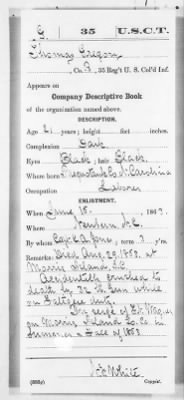 G 35 U.S.C.T.
Thomas Gregory
, Co. G, 35 Reg't U. S. Col'd Inf.
Appears on
Company Descriptive Book
of the organization named above.
DESCRIPTION.
Age 21 years; height feet inches.
Complexion Dark
Eyes Black; hair Black
Where born N. Carolina
Occupation Laborer
ENLISTMENT.
When June 15, 1863.
Where Newbern N.C.
By whom Capt. ; term 3 y'rs.
Remarks: Died Aug. 29, 1863, at
Morris Island S.C.
Accidentally crushed to
death by Gun while
on Fatigue duty.
In seige of Ft. Wagner
on Morris Island S.C. in
Summer & Fall of 1863.
White
Copyist.